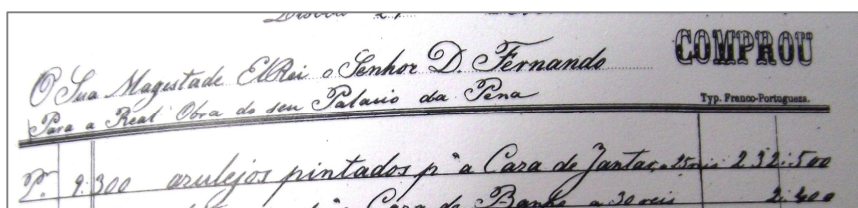 Lisboa
O Sua Magestade ElRei o Senhor D. Fernando
COMPROU
Para a Real Obra do seu Palacio da Pena
Typ. Franco-Portugueza.
P. 9.300 azulejos pintados pª a Caza de Jantar, a 25 reis 232:500
pª a Caza de Banho a 30 reis 2:400